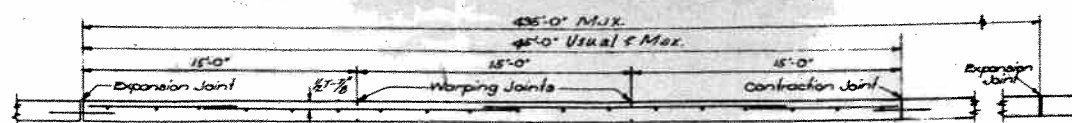 495'-0" Max.
45'-0" Usual & Max.
15'-0" 15'-0" 15'-0"
Expansion Joint Warping Joints Contraction Joint Expansion Joint